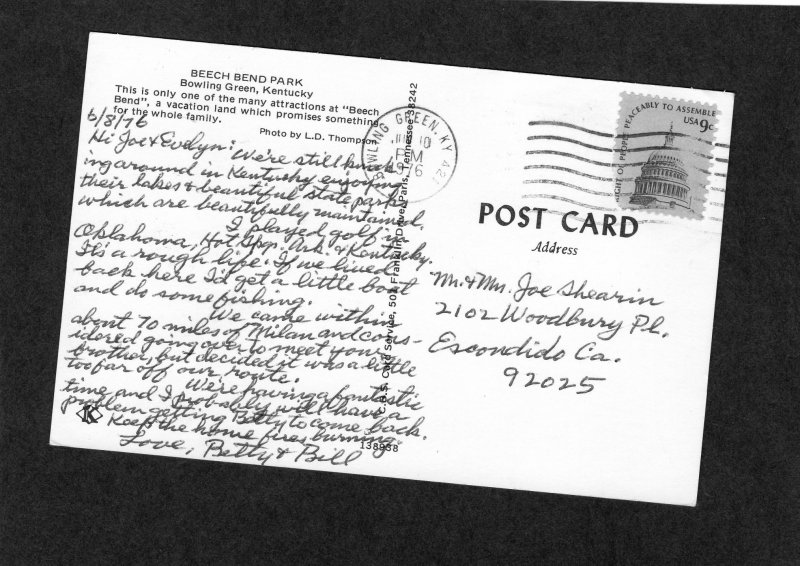 BEECH BEND PARK
Bowling Green, Kentucky
This is only one of the many attractions at "Beech
Bend", a vacation land which promises something
for the whole family.
Photo by L.D. Thompson
6/8/76
Hi Joe & Evelyn: We're still knock-
ing around in Kentucky enjoying
their lakes & beautiful state parks
which are beautifully maintained.
I played golf in
Oklahoma, Hot Spgs. Ark. & Kentucky.
It's a rough life. If we lived
back here I'd get a little boat
and do some fishing.
We came within
about 70 miles of Milan and cons-
idered going over to meet your
brother, but decided it was a little
too far off our route.
We're having a fantastic
time and I probably will have a
problem getting Betty to come back.
Keep the home fires burning.
Love, Betty & Bill
K
C.B.S. Card Service, 504 Franklin Drive, Paris, Tennessee 38242
138938
BOWLING GREEN, KY 421
10
PM
1976
RIGHT OF PEOPLE PEACEABLY TO ASSEMBLE
USA 9c
POST CARD
Address
Mr. & Mrs. Joe Shearin
2102 Woodbury Pl.
Escondido Ca.
92025